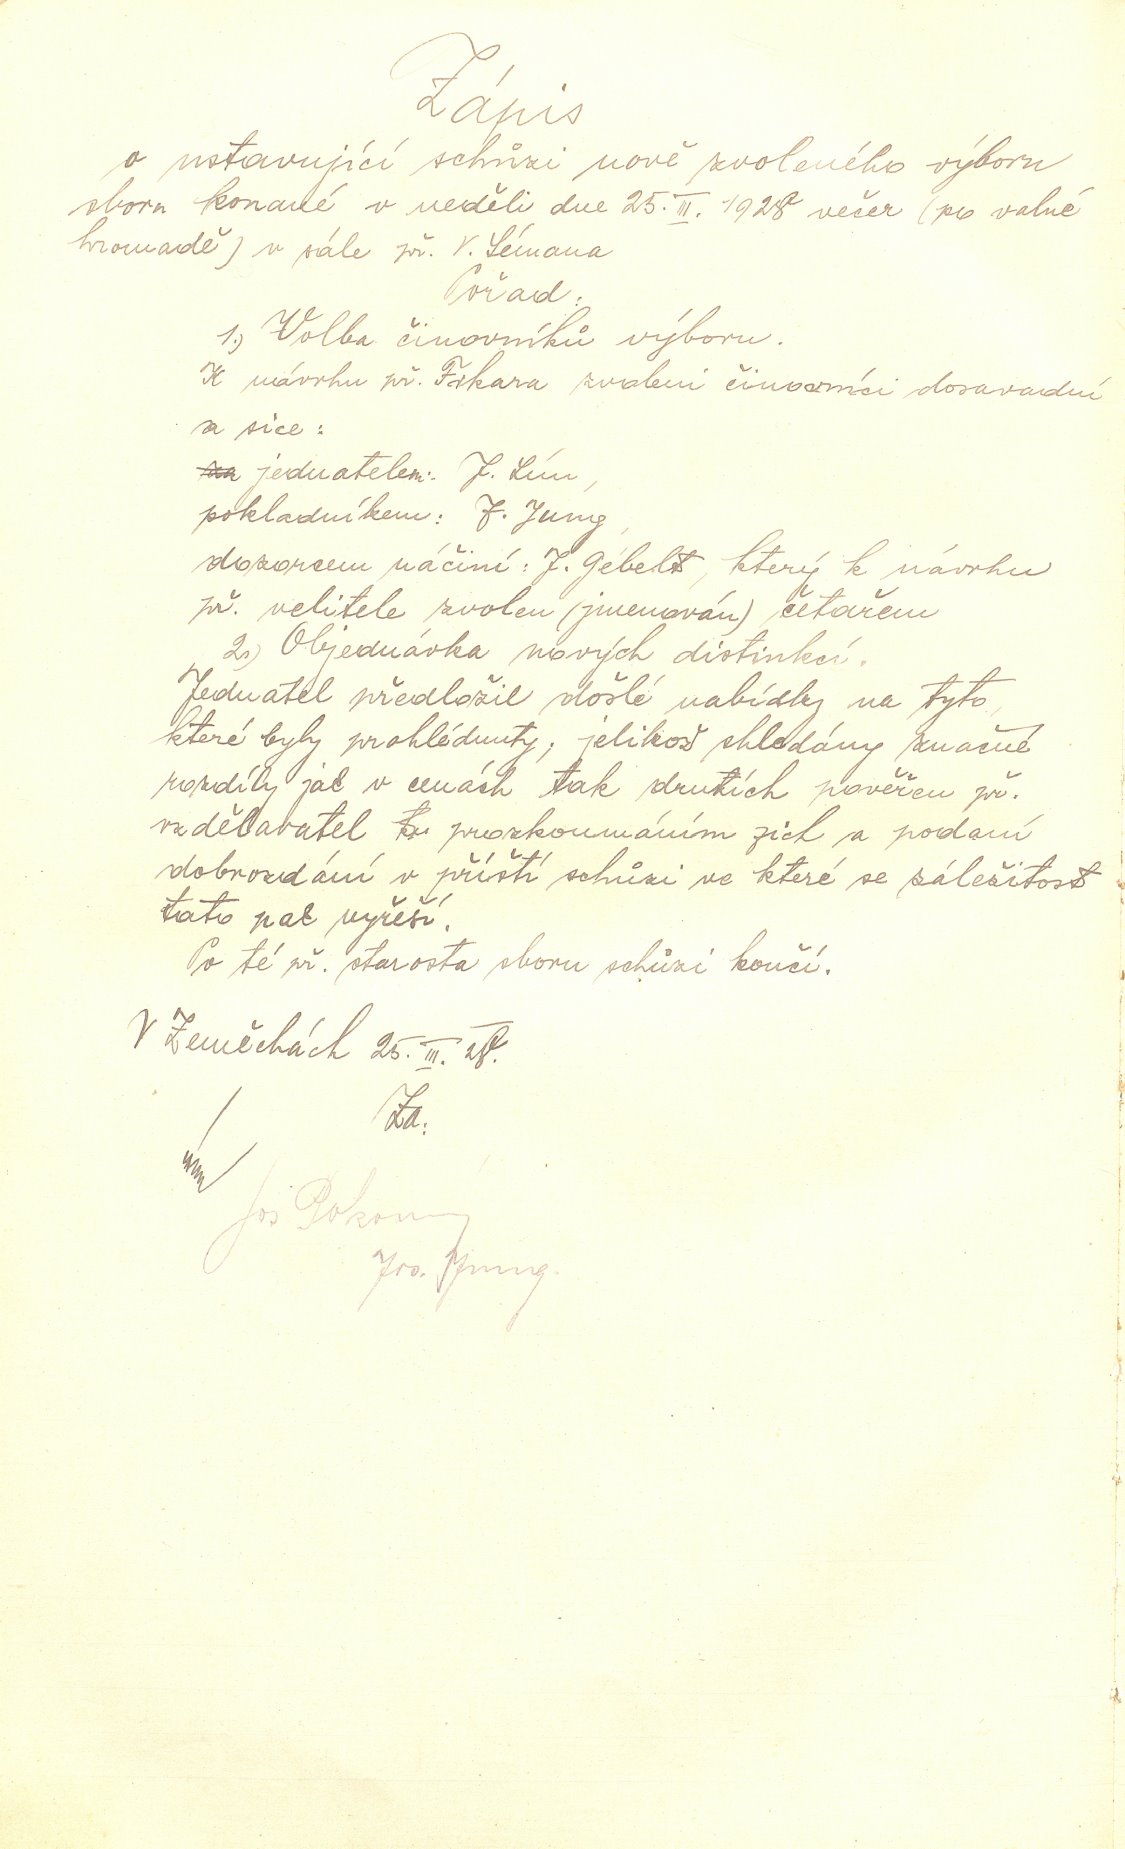 Zápis
o ustavující schůzi nově zvoleného výboru
sboru konané v neděli dne 25. III. 1928 večer (po valné
hromadě) v sále př. V. Lémana
Pořad:
1.) Volba činovníků výboru.
K návrhu př. Fikara zvoleni činovníci dosavadní
a sice:
jednatelem: J. Lím,
pokladníkem: F. Jung,
dozorcem náčiní: J. Gébelt, který k návrhu
př. velitele zvolen (jmenován) četařem
2.) Objednávka nových distinkcí.
Jednatel předložil došlé nabídky na tyto,
které byly prohlédnuty; jelikož shledány značné
rozdíly jak v cenách tak druzích pověřen př.
vzdělavatel prozkoumáním jich a podaní
dobrozdání v příští schůzi ve které se záležitost
tato pak vyřeší.
Po té př. starosta sboru schůzi končí.
V Zeměchách 25. III. 28.
Za:
Jos Pokorný
Jos. Jung.